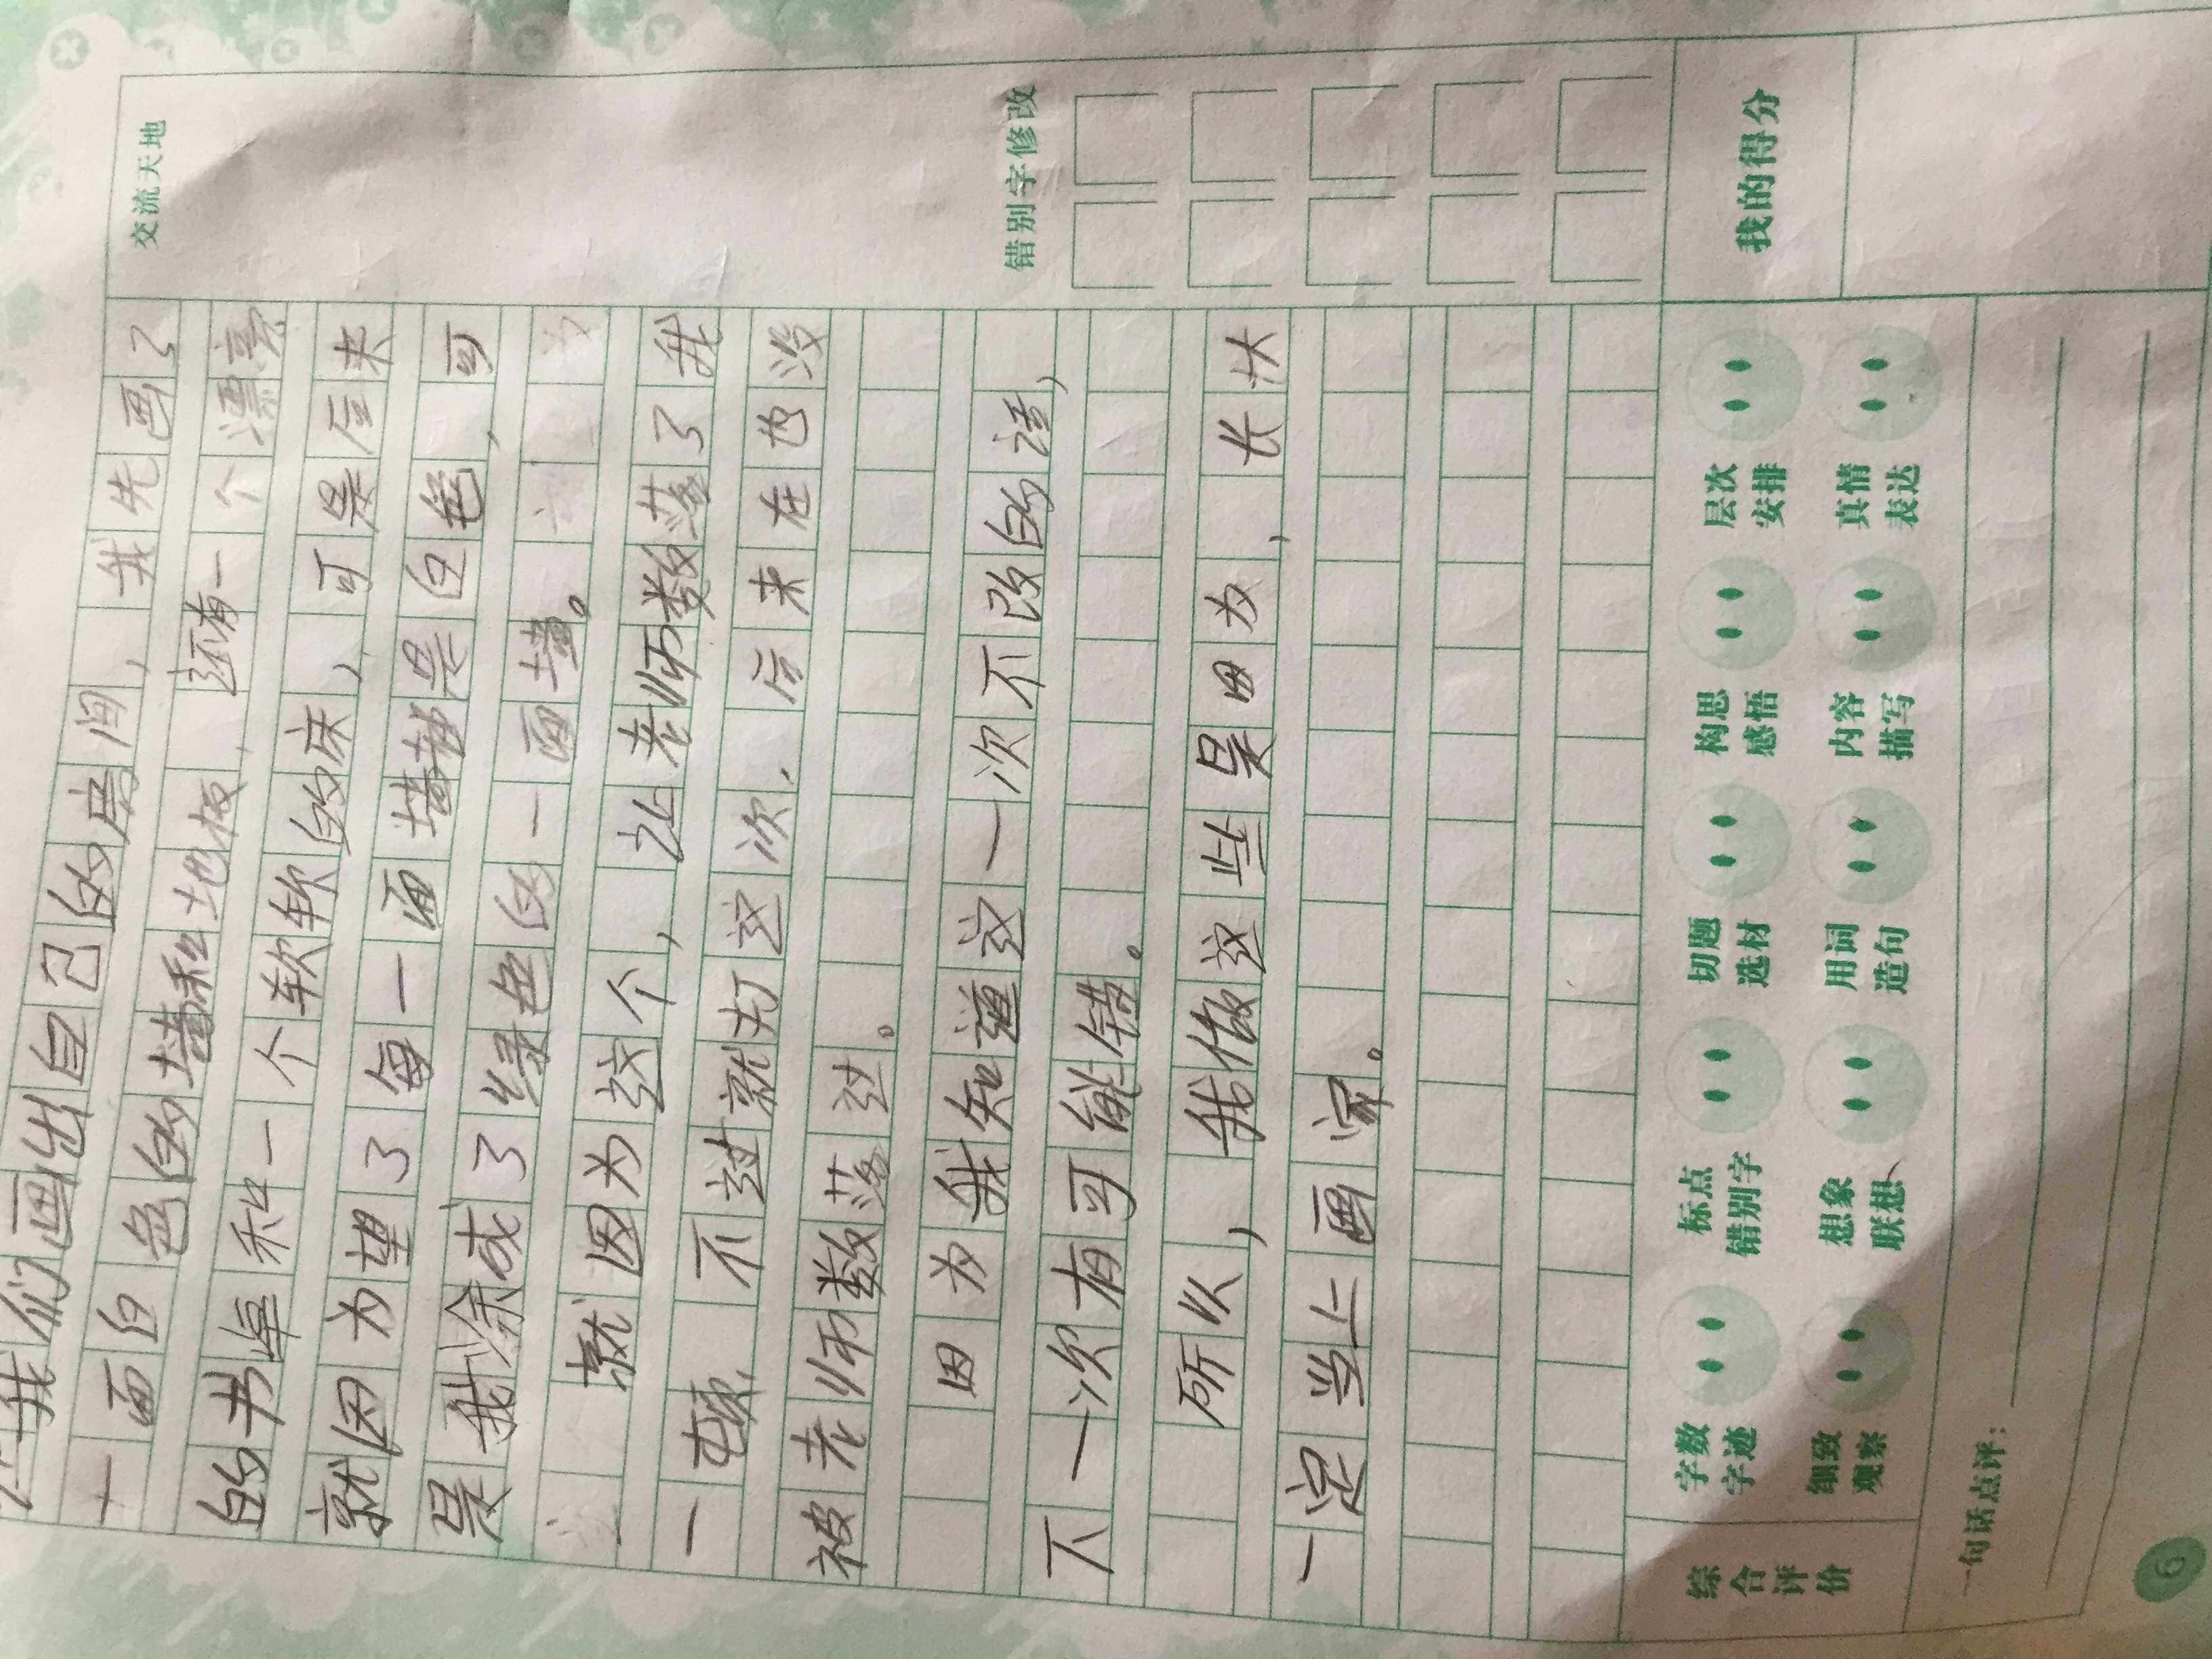 让我们画出自己的房间，我先画了
一面白色的墙和地板，还有一个漂亮
的书桌和一个软软的床，可是后来
就因为望了每一面墙都是白色，可
是我涂成了绿色的一面墙。
就因为这个，让老师数落了我
一顿，不过就打这次，后来在也没
被老师数落过。
因为我知道这一次不改的话，
不一次有可能错。
所以，我做这些是因为，长大
一定当上画家。
交流天地
错别字修改
我的得分
综合评价
字数字迹
标点错别字
切题选材
构思感悟
层次安排
细致观察
想象联想
用词造句
内容描写
真情表达
一句话点评：
6